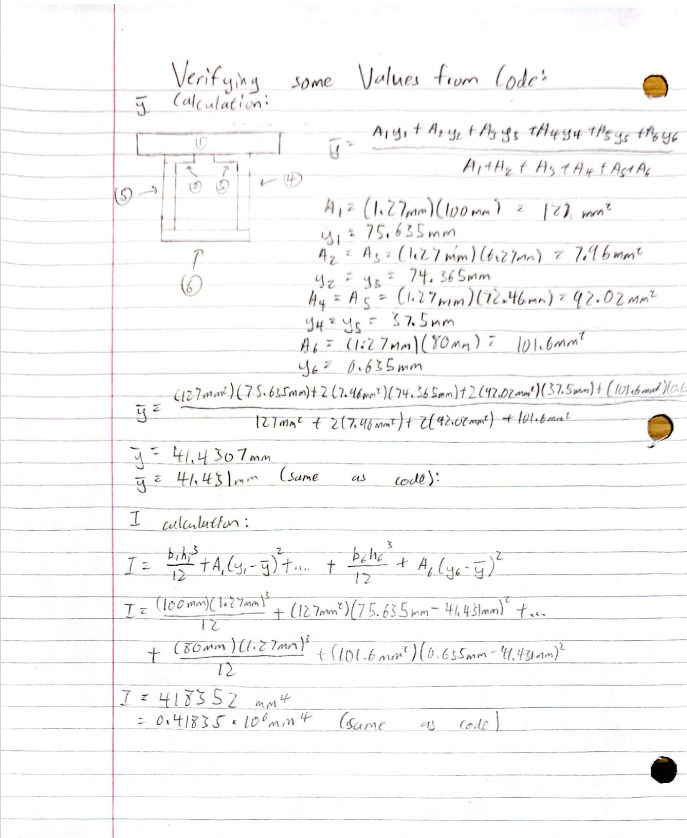 Verifying some Values from Code:
ȳ Calculation:
①
② ③ ④
⑤
⑥
ȳ = A₁y₁ + A₂y₂ + A₃y₃ + A₄y₄ + A₅y₅ + A₆y₆
A₁ + A₂ + A₃ + A₄ + A₅ + A₆
A₁ = (1.27mm)(100mm) = 127 mm²
y₁ = 75.635mm
A₂ = A₃ = (1.27mm)(6.27mm) = 7.96mm²
y₂ = y₃ = 74.365mm
A₄ = A₅ = (1.27mm)(72.46mm) = 92.02mm²
y₄ = y₅ = 37.5mm
A₆ = (1.27mm)(80mm) = 101.6mm²
y₆ = 0.635mm
ȳ = (127mm²)(75.635mm) + 2(7.96mm²)(74.365mm) + 2(92.02mm²)(37.5mm) + (101.6mm²)(0.6
127mm² + 2(7.96mm²) + 2(92.02mm²) + 101.6mm²
ȳ = 41.4307mm
ȳ = 41.431mm (same as code):
I calculation:
I = b₁h₁³/12 + A₁(y₁ - ȳ)² + ... + b₆h₆³/12 + A₆(y₆ - ȳ)²
I = (100mm)(1.27mm)³/12 + (127mm²)(75.635mm - 41.431mm)² + ...
+ (80mm)(1.27mm)³/12 + (101.6mm²)(0.635mm - 41.431mm)²
I = 418352 mm⁴
= 0.41835 • 10⁶ mm⁴ (same as code)